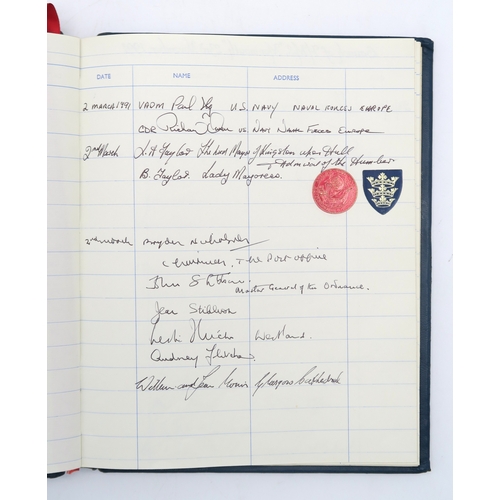 DATE NAME ADDRESS
2 MARCH 1991 VADM Paul U.S. NAVY NAVAL FORCES EUROPE
CDR Richard US Navy Naval Forces Europe
2nd March L. A Taylor The Lord Mayor of Kingston upon Hull
Admiral of the Humber
B. Taylor Lady Mayoress
Bryan Nicholson
Chairman, The Post Office
John
Master General of the Ordnance.
Jean
Westland
Audrey Fletcher
William and Jean Morris Glasgow Cathedral